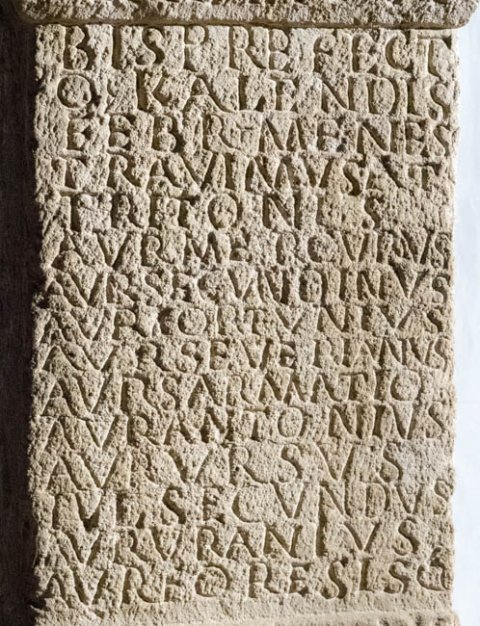 BIS PREFECT
O KALENDIS
FEBR MENES
TRAVIMVS NT
TRITONIS
AVR
AVR SECVNDINVS
AVR FORTVNIVS
AVR SEVERIANVS
AVR SARMATIO
AVR ANTONIVS
AVR VRSVS
IVL SECVNDVS
AVR VRANIVS
AVR FORESIS